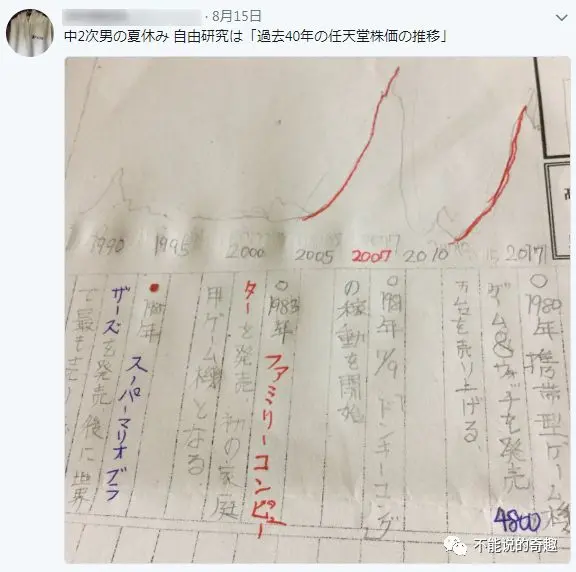 · 8月15日
中2次男の夏休み 自由研究は「過去40年の任天堂株価の推移」
1990 1995 2000 2005 2007 2010 15 2017
○1980年 携帯型ゲーム機
ゲーム&ウォッチを発売
4800
万台を売り上げる。
○1981年 7/9 「ドンキーコング」
の稼動を開始
○1983年 ファミリーコンピュー
ターと発売 初の家庭
用ゲーム機となる
●1985年 スーパーマリオブラ
ザーズを発売 後に世界
で最も売
不能说的奇趣